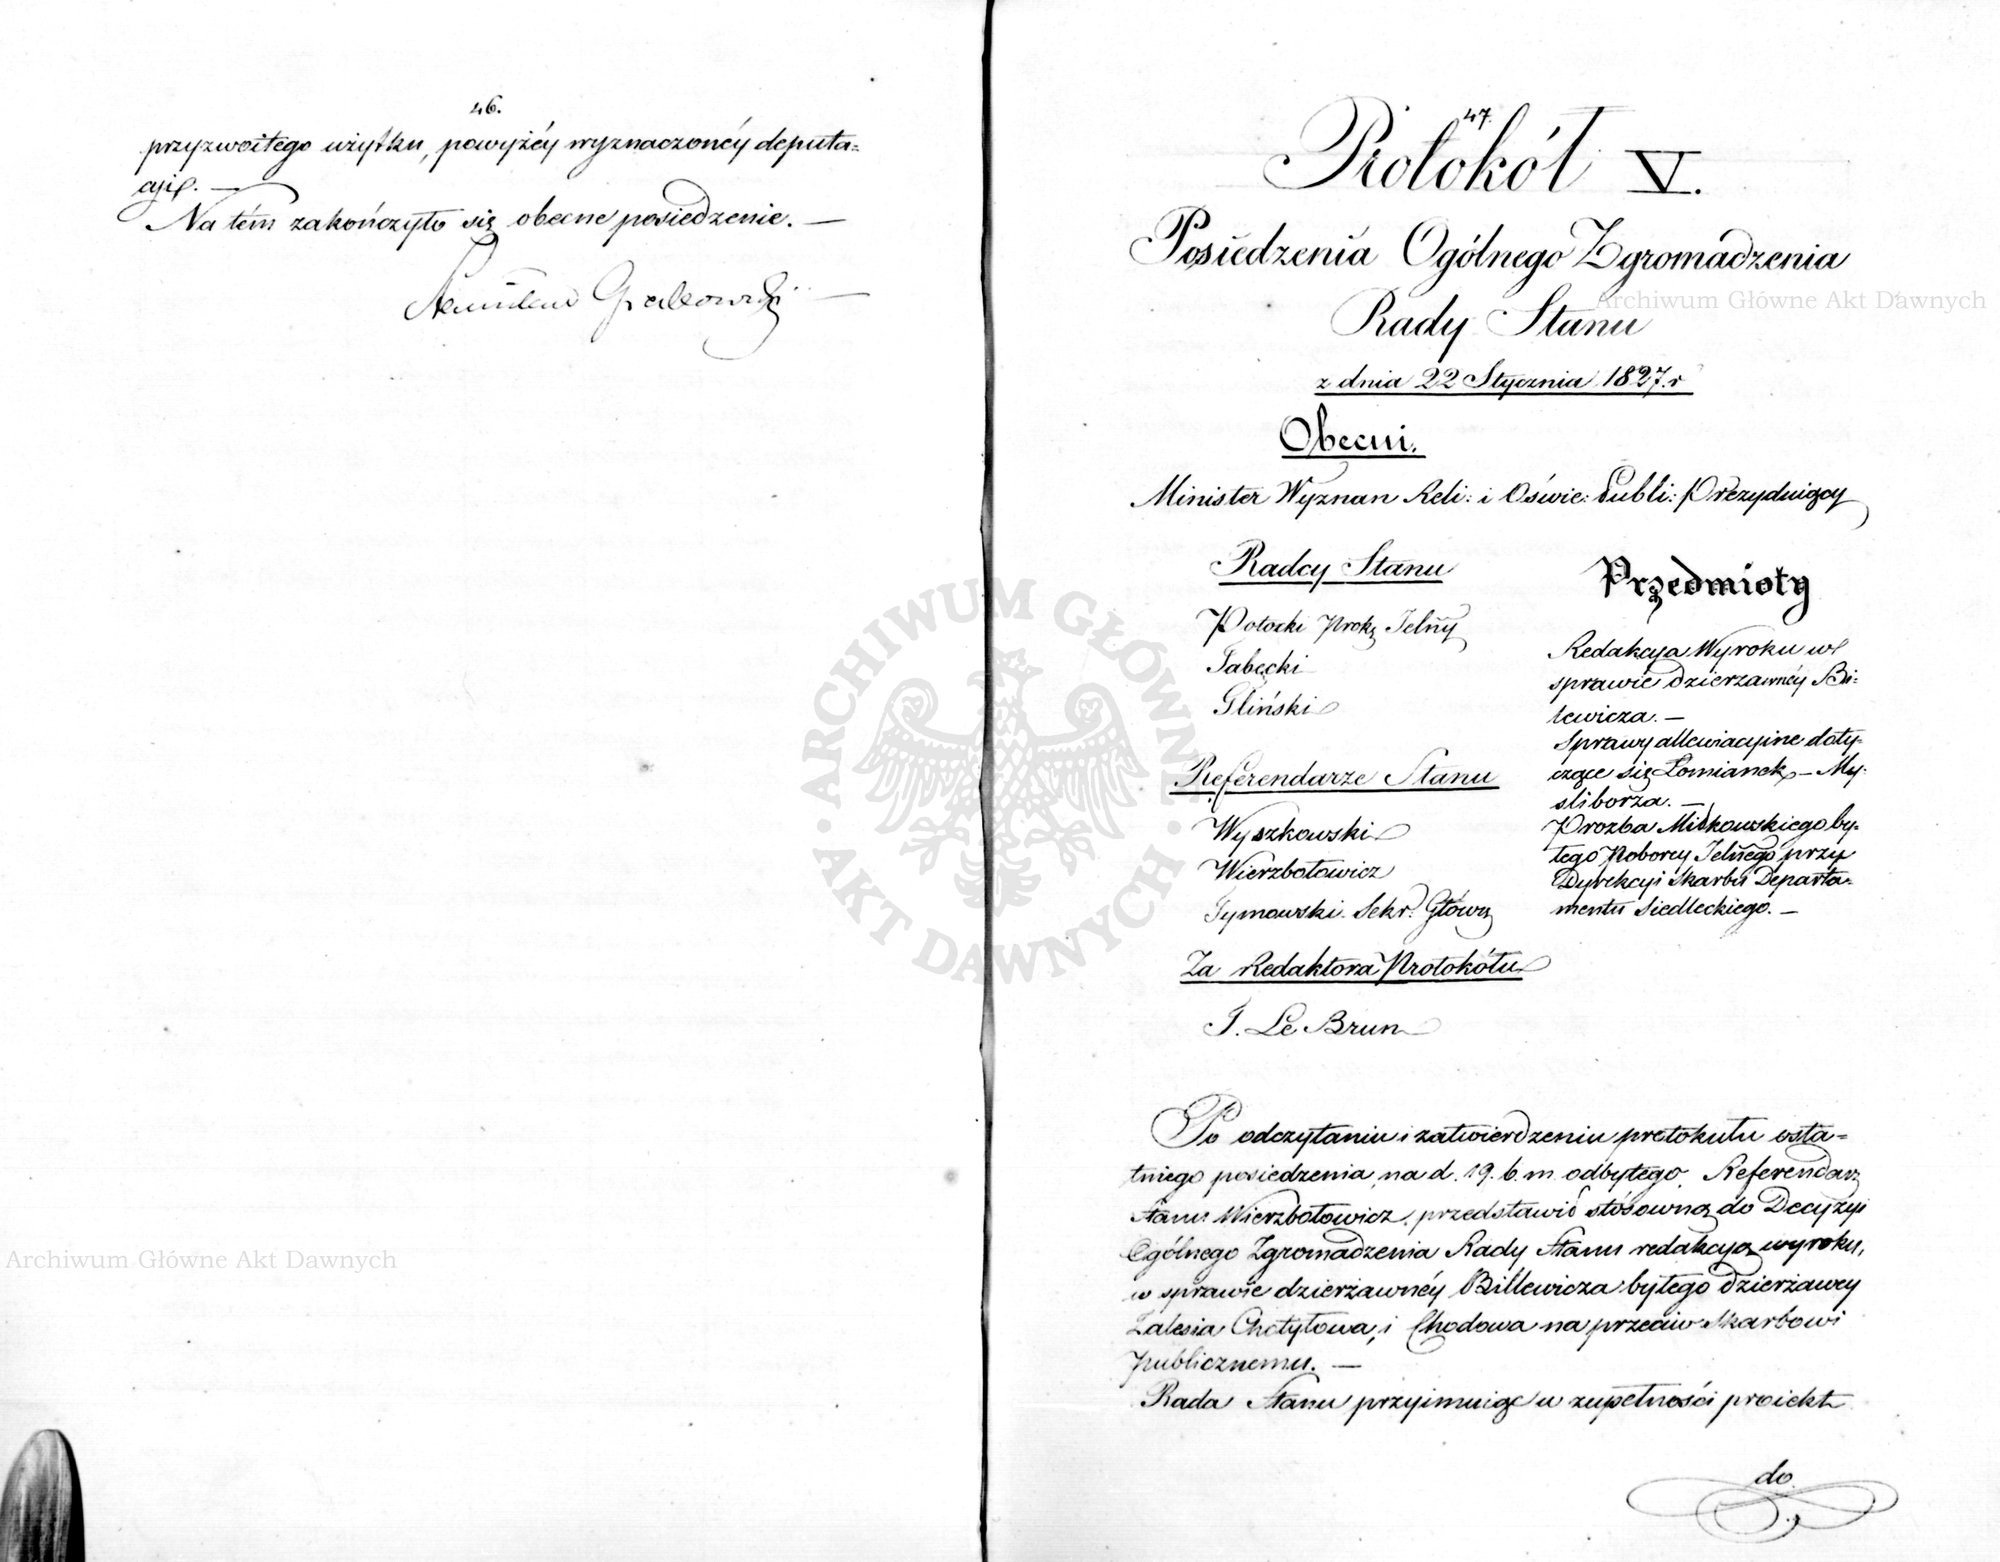 46.
przyzwoitego użytku, powyżéy wyznaczonéy deputa=
cyi. —
Na tém zakończyło się obecne posiedzenie. —
Stanisław Grabowski
47.
Protokół V.
Posiedzenia Ogólnego Zgromadzenia
Rady Stanu
z dnia 22 Stycznia 1827. r
Obecni.
Minister Wyznan Reli: i Oświe: Publi: Prezyduiący
Radcy Stanu
Potocki Prok: Jelñy
Tabęcki
Gliński
Referendarze Stanu
Wyszkowski
Wierzbołowicz
Tymowski Sekr. Główny
Za Redaktora Protokółu
J. Le Brun
Przedmioty
Redakcya Wyroku w
sprawie dzierzawnéy Bil-
lewicza. —
Sprawy allewiacyine doty-
czące się Łomianek, — My-
śliborza. —
Prozba Mińkowskiego by-
łego Poborcy Jelñego przy
Dyrekcyi Skarbu Departa-
mentu Siedleckiego. —
Po odczytaniu i zatwierdzeniu protokułu osta=
tniego posiedzenia na d. 19. b. m. odbytego, Referendarz
Stanu Wierzbołowicz, przedstawił stósowną do Decyzyi
Ogólnego Zgromadzenia Rady Stanu redakcyą wyroku,
w sprawie dzierżawnéy Billewicza byłego dzierżawcy
Zalesia Chotyłowa, i Chodowa na przeciw Skarbowi
publicznemu. —
Rada Stanu przyimuiąc w zupełności proiekt
do
Archiwum Główne Akt Dawnych
Archiwum Główne Akt Dawnych
ARCHIWUM GŁÓWNE · AKT DAWNYCH ·